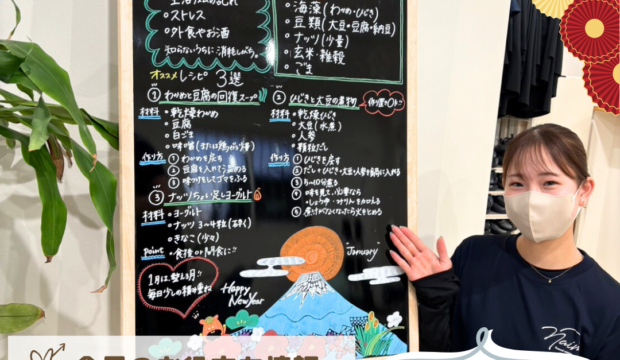 ・ストレス
・外食やお酒
知らないうちに消耗しがち。
・海藻(わかめ・ひじき)
・豆類(大豆・豆腐・納豆)
・ナッツ(少量)
・玄米・雑穀
・ごま
オススメレシピ3選
① わかめと豆腐の回復スープ
材料
・乾燥わかめ
・豆腐
・白ごま
・味噌(または鶏がら)
作り方
① わかめを戻す
② 豆腐を入れて温める
③ 味つけをしてゴマをふる
② ひじきと大豆の煮物
作り置き○!
材料
・乾燥ひじき
・大豆(水煮)
・人参
・顆粒だし
作り方
① ひじきを戻す
② だし+ひじき・大豆・人参を鍋に入れる
③ 5〜10分煮る
④ 味を見て、必要なら
・しょうゆ・みりんを加える
⑤ 度けがなくなったら火をとめる
③ ナッツちょい足しヨーグルト
材料
・ヨーグルト
・ナッツ 3〜4粒(砕く)
・きなこ(少々)
Point
・食後 or 間食に!!
1月は整える月!!
毎日少しの積み重ね
Happy
New Year
"January"